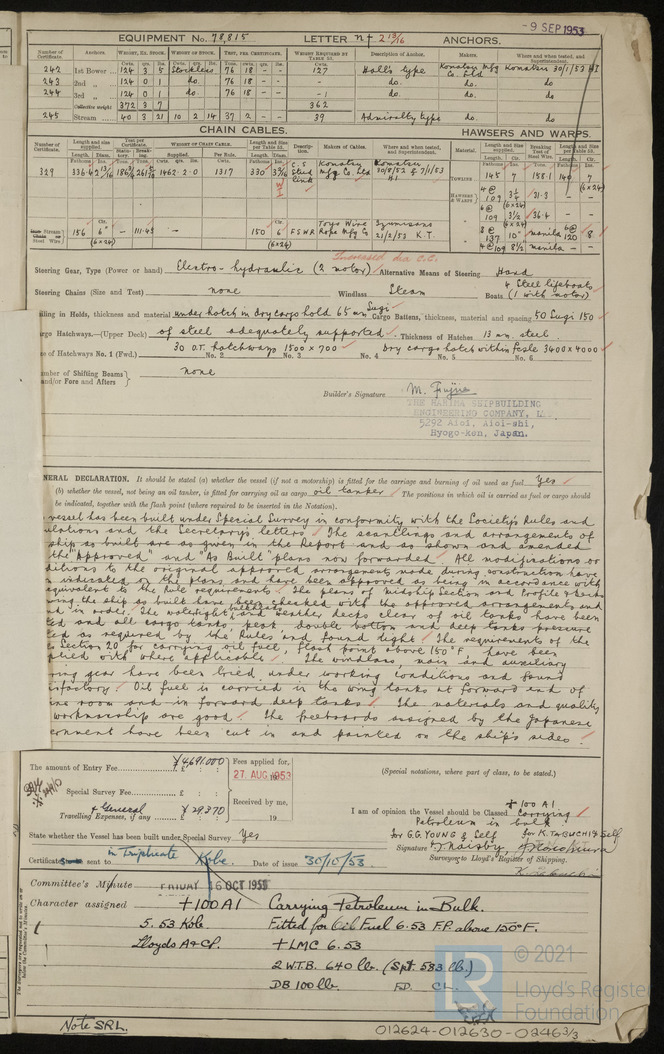 - 9 SEP 1953
EQUIPMENT No. 78,815 LETTER n† 2 13/16 ANCHORS.
Number of Certificate. Anchors. Weight, Ex. Stock. Weight of Stock. Test, per Certificate. Weight Required by Table 53. Description of Anchor. Makers. Where and when tested, and Superintendent.
Cwts. qrs. lbs. Cwts. qrs. lbs. Tons. cwts. qrs. lbs. Cwts.
242 1st Bower 124 3 5 Stockless 76 18 - - 127 Hall's type Komatsu Mfg Co. Ltd Komatsu 30/1/53 HI
243 2nd „ 124 0 1 do. 76 18 - - do. do. do
244 3rd „ 124 0 1 do. 76 18 - - do. do. do
Collective weight 372 3 7 362
245 Stream 40 3 21 10 2 14 37 2 - - 39 Admiralty type do. do
CHAIN CABLES. HAWSERS AND WARPS.
Number of Certificate. Length and size supplied. Test per Certificate. Weight of Chain Cable. Length and size per Table 53. Description. Makers of Cables. Where and when tested, and Superintendent. Material. Length and size supplied. Breaking Test of Steel Wire. Length and size per Table 53.
329 336.4 2 13/16 1462.2.0 1317 330 Stud link Komatsu Mfg Co. Ltd Komatsu 30/8/52 & 7/1/53 HI
Towlines 145 7 158.1 140 7 (6x24)
Hawsers & Warps 4@ 109 3 1/4 (6x24) 31.3
6@ 109 3 1/2 (6x24) 36.4
8@ 137 10" manila 6@ 120 8
4@ 109 8 1/2 manila -
Stream Chain or Steel Wire 156 6" (6x24) - 111.43 150 6 (6x24) FSWR Toyo Wire Rope Mfg Co 21/2/53 K.T.
Steering Gear, Type (Power or hand) Electro-hydraulic (2 motor) Alternative Means of Steering Hand
Steering Chains (Size and Test) none Windlass Steam Boats 4 Steel lifeboats (1 with motor)
iling in Holds, thickness and material under hatch in dry cargo hold 65 mm Sugi Cargo Battens, thickness, material and spacing 50 Sugi 150
rgo Hatchways.—(Upper Deck) of steel adequately supported. Thickness of Hatches 13 mm. steel.
e of Hatchways No. 1 (Fwd.) 30 O.T. hatchways 1500 x 700 No. 2 No. 3 No. 4 Dry cargo hatch within fcsle 3400 x 4000 No. 5 No. 6
mber of Shifting Beams and/or Fore and Afters } none
Builder's Signature M. Fujii
THE HARIMA SHIPBUILDING
ENGINEERING COMPANY, L
5292 Aioi, Aioi-shi,
Hyogo-ken, Japan.
NERAL DECLARATION. It should be stated (a) whether the vessel (if not a motorship) is fitted for the carriage and burning of oil used as fuel Yes
(b) whether the vessel, not being an oil tanker, is fitted for carrying oil as cargo oil tanker The positions in which oil is carried as fuel or cargo should
be indicated, together with the flash point (where required to be inserted in the Notation).
vessel has been built under Special Survey in conformity with the Society's Rules and
ulations and the Secretary's letters. The scantlings and arrangements of
ship as built are as given in the Report and as shown and amended
the "approved" and "As Built" plans now forwarded. All modifications or
ditions to the original approved arrangements made during construction have
n indicated on the plans, and have been approved as being in accordance with
equivalent to the Rule requirements. The plans of midship section and Profile & decks
ing the ship as built have been checked with the approved arrangements and
nd in order. The watertight bulkheads, weather decks clear of oil tanks have been
ed and all cargo tanks, peak double bottom and deep tanks pressure
ed as required by the Rules and found tight. The requirements of the
Section 20 for carrying oil fuel, flash point above 150°F, have been
plied with where applicable. The windlass, main and auxiliary
ring gear have been tried under working conditions and found
isfactory. Oil fuel is carried in the wing tanks at forward end of
ine room and in forward deep tanks. The materials and quality
workmanship are good. The freeboards assigned by the Japanese
ernment have been cut in and painted on the ship's sides.
The amount of Entry Fee ¥4,691,000
Special Survey Fee £ : :
& General
Travelling Expenses, if any ¥29,370
Fees applied for, 27 AUG 1953
Received by me, 19
(Special notations, where part of class, to be stated.)
I am of opinion the Vessel should be Classed +100 A1 Carrying
Petroleum in bulk
for G.G. YOUNG & Self for K. TABUCHI & Self
Signature
Surveyor to Lloyd's Register of Shipping.
State whether the Vessel has been built under Special Survey Yes
Certificate sent to in Triplicate Kobe. Date of issue 30/10/53
Committee's Minute FRIDAY 16 OCT 1953
Character assigned +100A1 Carrying Petroleum in Bulk.
5.53 Kobe Fitted for Oil Fuel 6.53 F.P. above 150°F.
Lloyds A&CP. +LMC 6.53
2 W.T.B. 640 lb. (Spt. 583 lb.)
DB 100 lb. F.D. CL.
Note SRL.
© 2021
Lloyd's Register
Foundation
012624-012630-0246 3/3